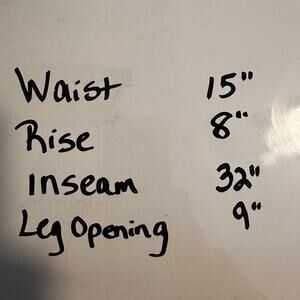 Waist 15"
Rise 8"
Inseam 32"
Leg Opening 9"